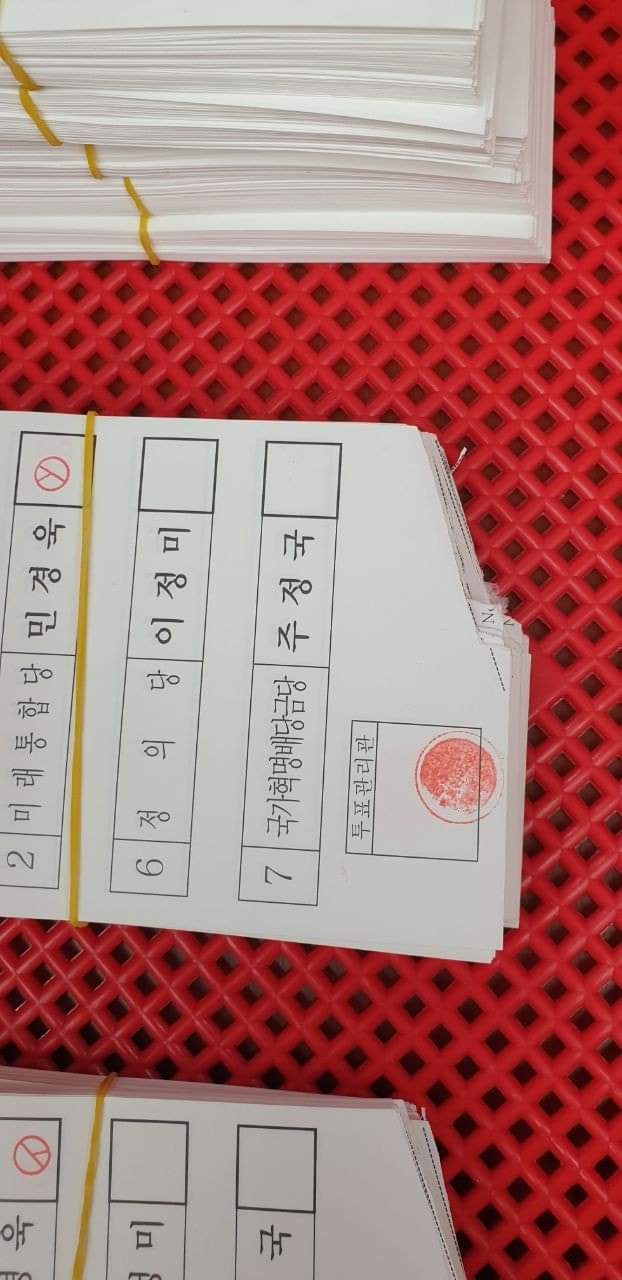 2 미래통합당 민경욱
6 정의당 이정미
7 국가혁명배당금당 주정국
투표관리관
N
N
욱
미
국